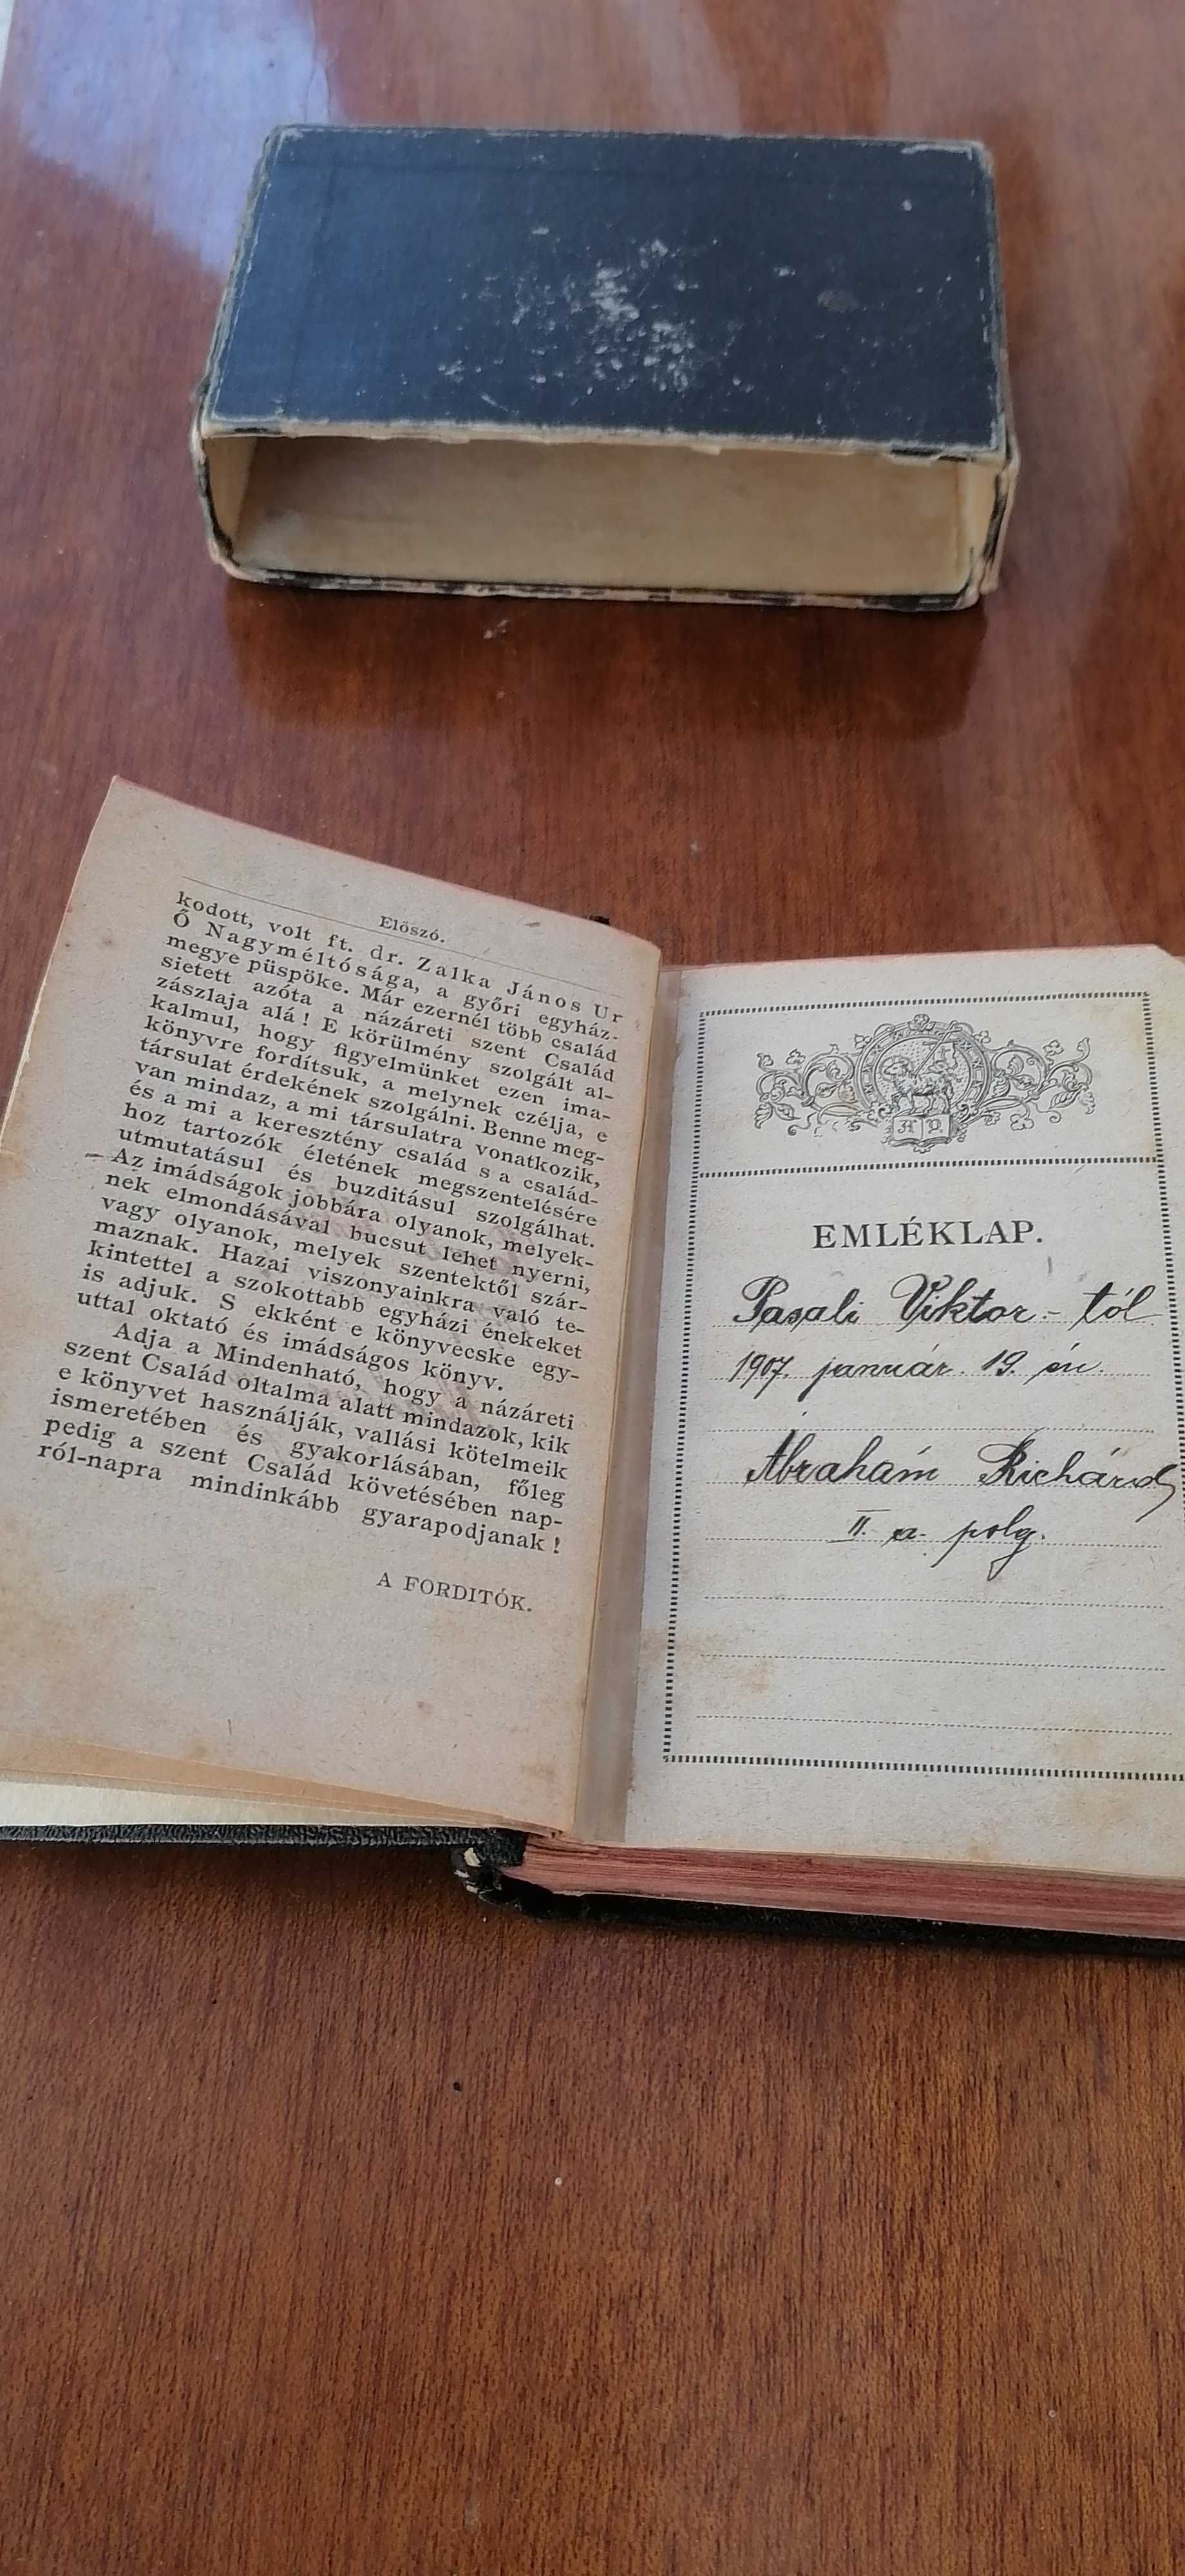 Előszó.
kodott, volt ft. dr. Zalka János Ur
Ő Nagyméltósága, a győri egyház-
megye püspöke. Már ezernél több család
sietett azóta a názáreti szent Család
zászlaja alá! E körülmény szolgált al-
kalmul, hogy figyelmünket ezen ima-
könyvre fordítsuk, a melynek czélja, e
társulat érdekének szolgálni. Benne meg-
van mindaz, a mi társulatra vonatkozik,
és a mi a keresztény család s a család-
hoz tartozók életének megszentelésére
utmutatásul és buzditásul szolgálhat.
Az imádságok jobbára olyanok, melyek-
nek elmondásával bucsut lehet nyerni,
vagy olyanok, melyek szentektől szár-
maznak. Hazai viszonyainkra való te-
kintettel a szokottabb egyházi énekeket
is adjuk. S ekként e könyvecske egy-
uttal oktató és imádságos könyv.
Adja a Mindenható, hogy a názáreti
szent Család oltalma alatt mindazok, kik
e könyvet használják, vallási kötelmeik
ismeretében és gyakorlásában, főleg
pedig a szent Család követésében nap-
ról-napra mindinkább gyarapodjanak!
A FORDITÓK.
A Ω
EMLÉKLAP.
Pasali Viktor-tól
1907. január. 19. én.
Abrahám Richárd
II. a. polg.